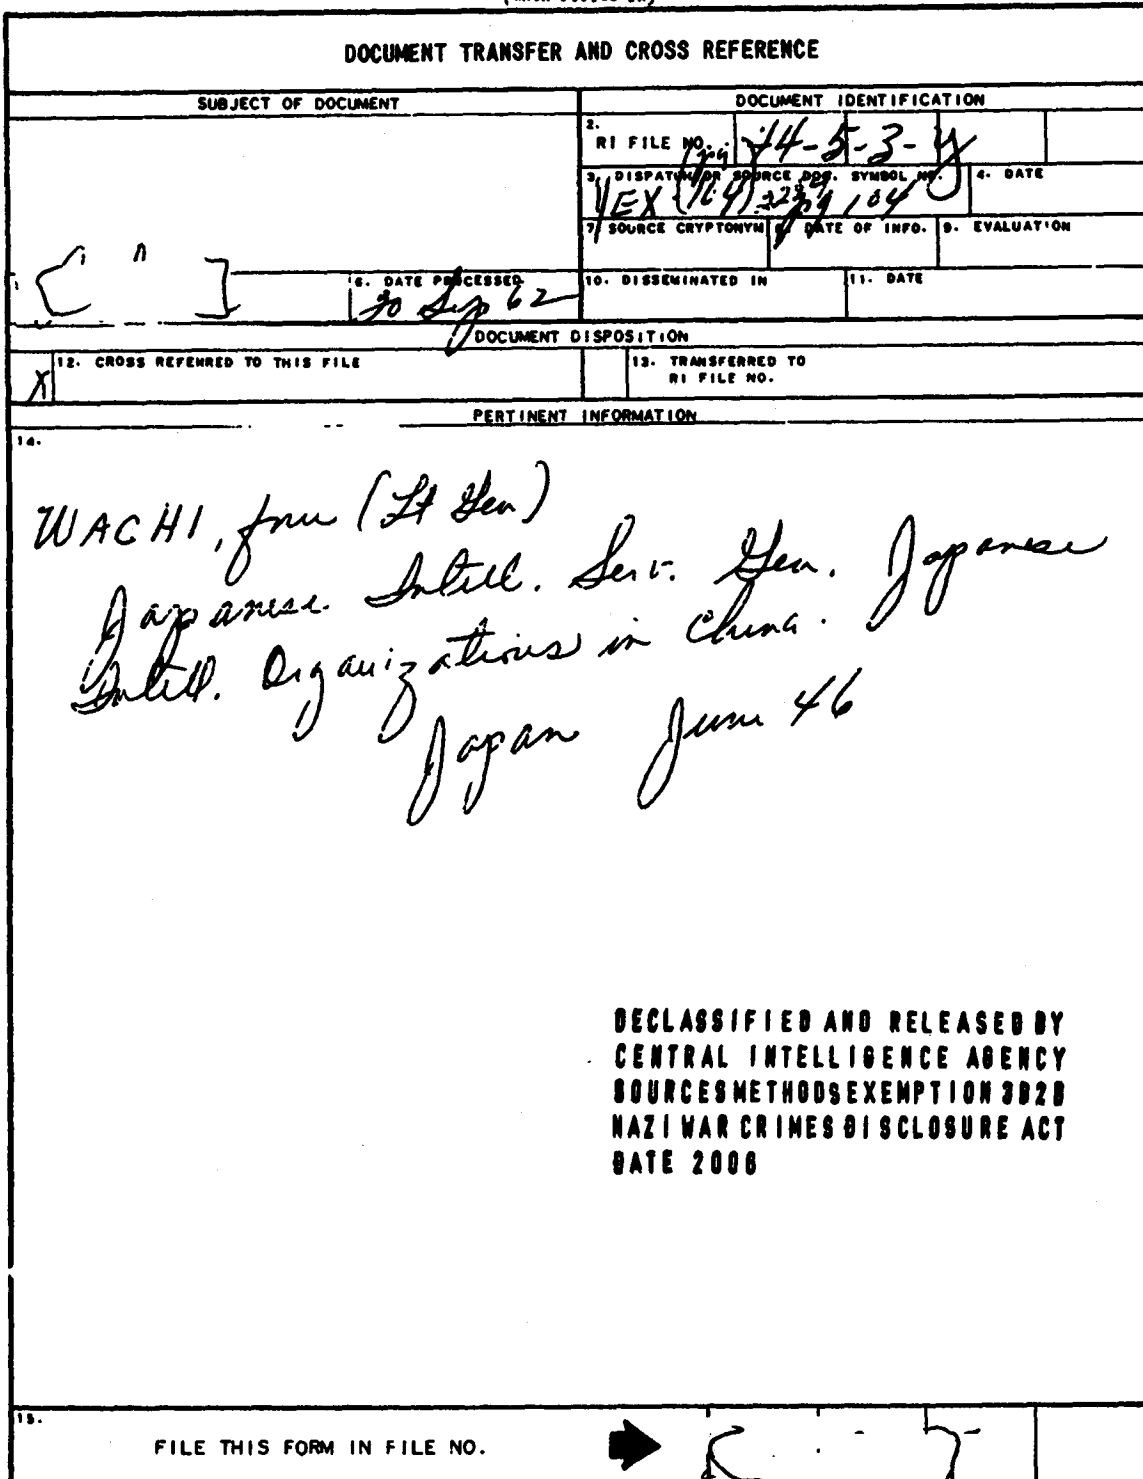 DOCUMENT TRANSFER AND CROSS REFERENCE
SUBJECT OF DOCUMENT
DOCUMENT IDENTIFICATION
2.
RI FILE NO.
44-5-3-
3. DISPATCH OR SOURCE DOC. SYMBOL NO.
4. DATE
pg 104
7. SOURCE CRYPTONYM
8. DATE OF INFO.
9. EVALUATION
6. DATE PROCESSED
20 Sep 62
10. DISSEMINATED IN
11. DATE
DOCUMENT DISPOSITION
X
12. CROSS REFERRED TO THIS FILE
13. TRANSFERRED TO
RI FILE NO.
PERTINENT INFORMATION
14.
WACHI, fnu (Lt Gen)
Japanese Intell. Serv. Gen. Japanese
Intell. Organizations in China.
Japan June 46
DECLASSIFIED AND RELEASED BY
CENTRAL INTELLIGENCE AGENCY
SOURCES METHODS EXEMPTION 3B2B
NAZI WAR CRIMES DISCLOSURE ACT
DATE 2006
15.
FILE THIS FORM IN FILE NO.